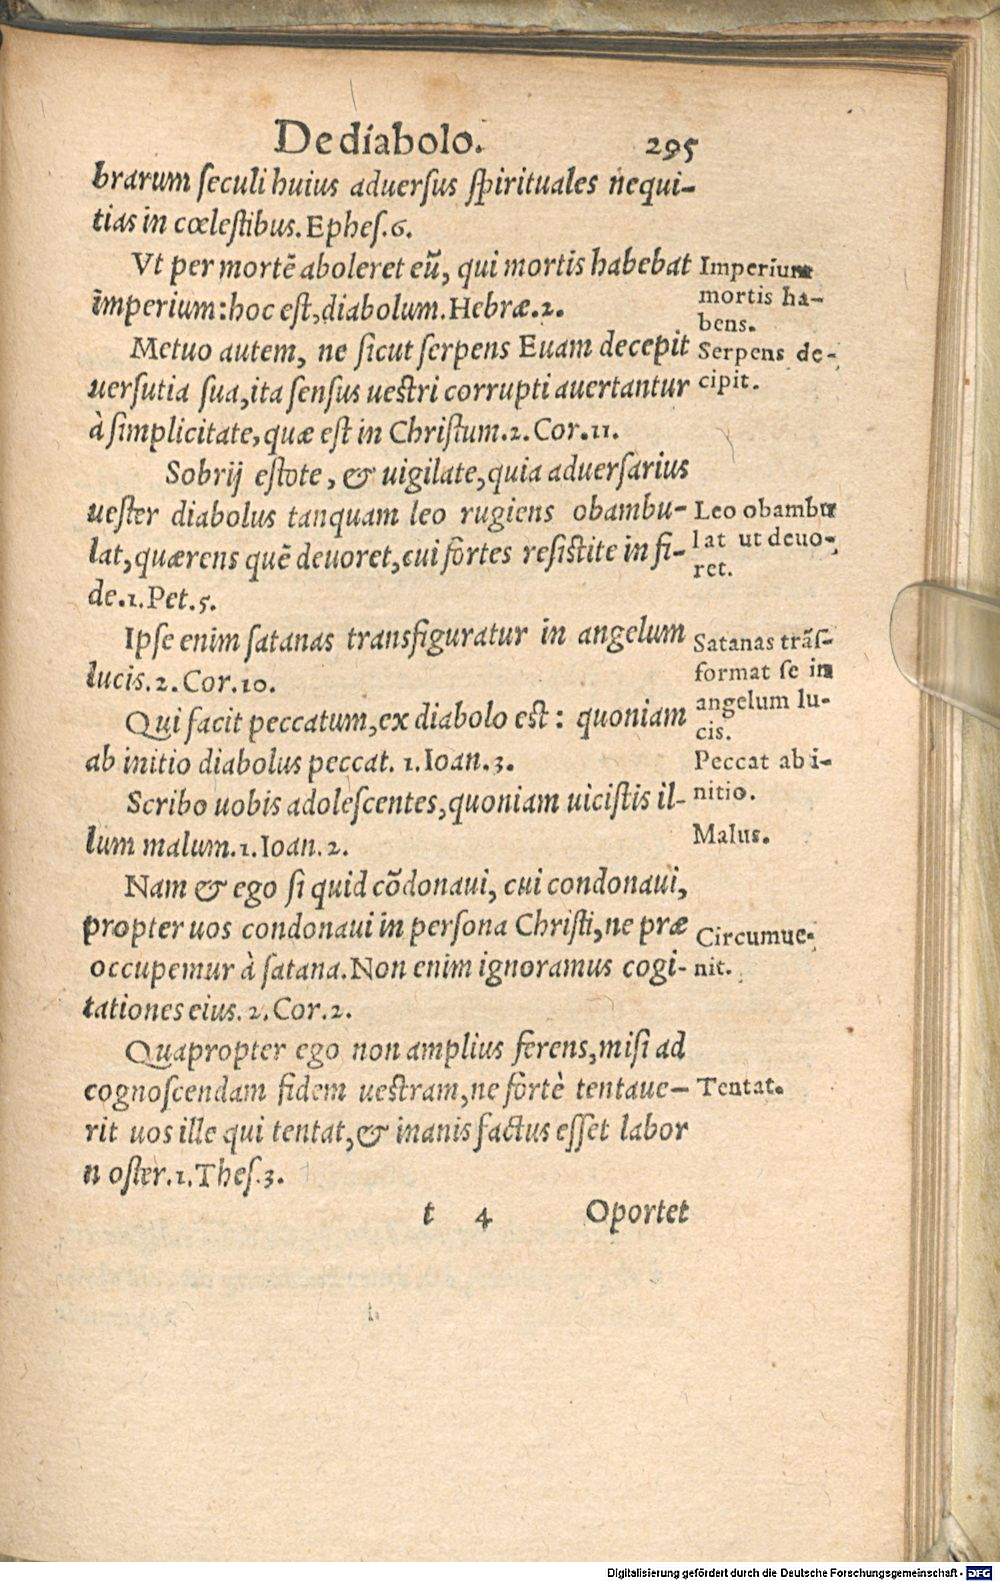 De diabolo. 295
brarum ſeculi huius aduerſus ſpirituales nequi-
tias in cœleſtibus. Epheſ. 6.
Vt per mortē aboleret eū, qui mortis habebat
imperium: hoc eſt, diabolum. Hebræ. 2.
Imperium
mortis ha-
bens.
Metuo autem, ne ſicut ſerpens Euam decepit
uerſutia ſua, ita ſenſus ueſtri corrupti auertantur
à ſimplicitate, quæ eſt in Chriſtum. 2. Cor. 11.
Serpens de-
cipit.
Sobrij eſtote, & uigilate, quia aduerſarius
ueſter diabolus tanquam leo rugiens obambu-
lat, quærens quē deuoret, cui fortes reſiſtite in fi-
de. 1. Pet. 5.
Leo obambu
lat ut deuo-
ret.
Ipſe enim ſatanas transfiguratur in angelum
lucis. 2. Cor. 10.
Satanas trāſ-
format ſe in
angelum lu-
cis.
Qui facit peccatum, ex diabolo eſt: quoniam
ab initio diabolus peccat. 1. Ioan. 3.
Peccat ab i-
nitio.
Scribo uobis adoleſcentes, quoniam uiciſtis il-
lum malum. 1. Ioan. 2.
Malus.
Nam & ego ſi quid cōdonaui, cui condonaui,
propter uos condonaui in perſona Chriſti, ne præ
occupemur à ſatana. Non enim ignoramus cogi-
tationes eius. 2. Cor. 2.
Circumue-
nit.
Quapropter ego non amplius ferens, miſi ad
cognoſcendam fidem ueſtram, ne fortè tentaue-
rit uos ille qui tentat, & inanis factus eſſet labor
noſter. 1. Theſ. 3.
Tentat.
t 4 Oportet
Digitalisierung gefördert durch die Deutsche Forschungsgemeinschaft - DFG